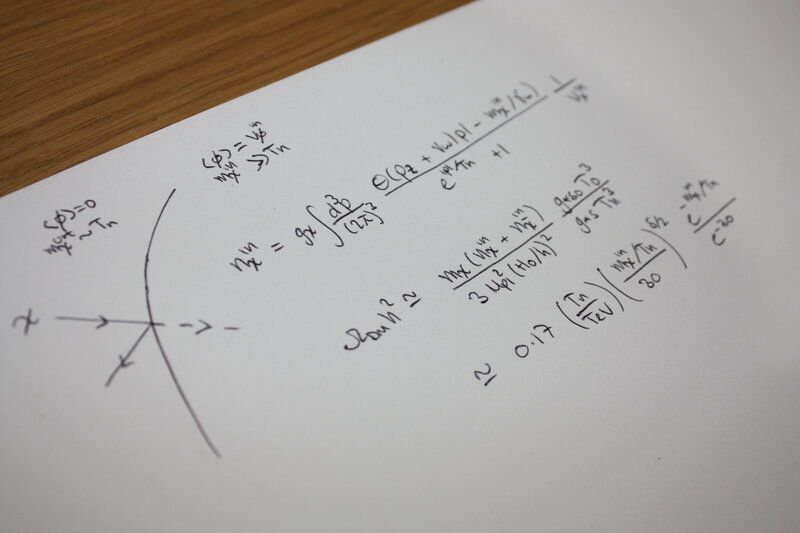 χ
⟨φ⟩ = 0
⟨φ⟩ =
n_χ^in = g_χ ∫ d³p/(2π)³ Θ(p_z + γ_w|p| - m_χ^in/γ_w) / (e^{|p|/T_n} + 1) 1/γ_w
Ω_DM h² ≃ m_χ(n_χ^in + n_χ̄^in) / 3M_pl²(H_0/h)² g_*S0 T_0³ / g_*S T_n³
≃ 0.17 (T_n/TeV) (m_χ^in/T_n / 30)^{5/2} e^{-m_χ^in/T_n} / e^{-30}